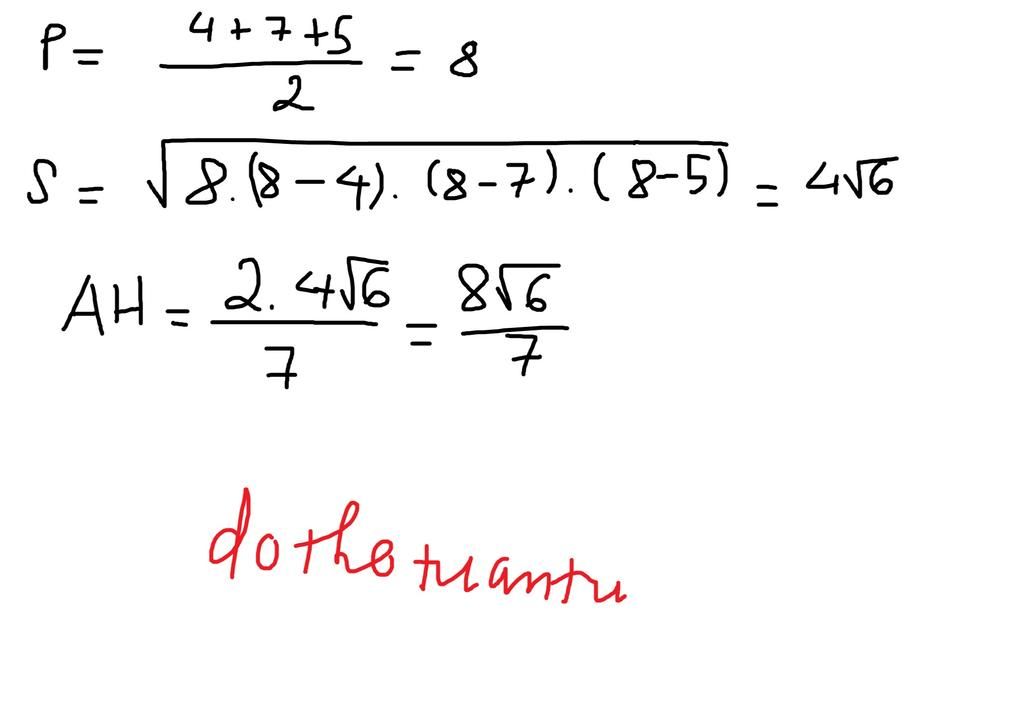 P = (4 + 7 + 5) / 2 = 8
S = √(8.(8 - 4).(8 - 7).(8 - 5)) = 4√6
AH = (2.4√6) / 7 = (8√6) / 7
do the tuantu